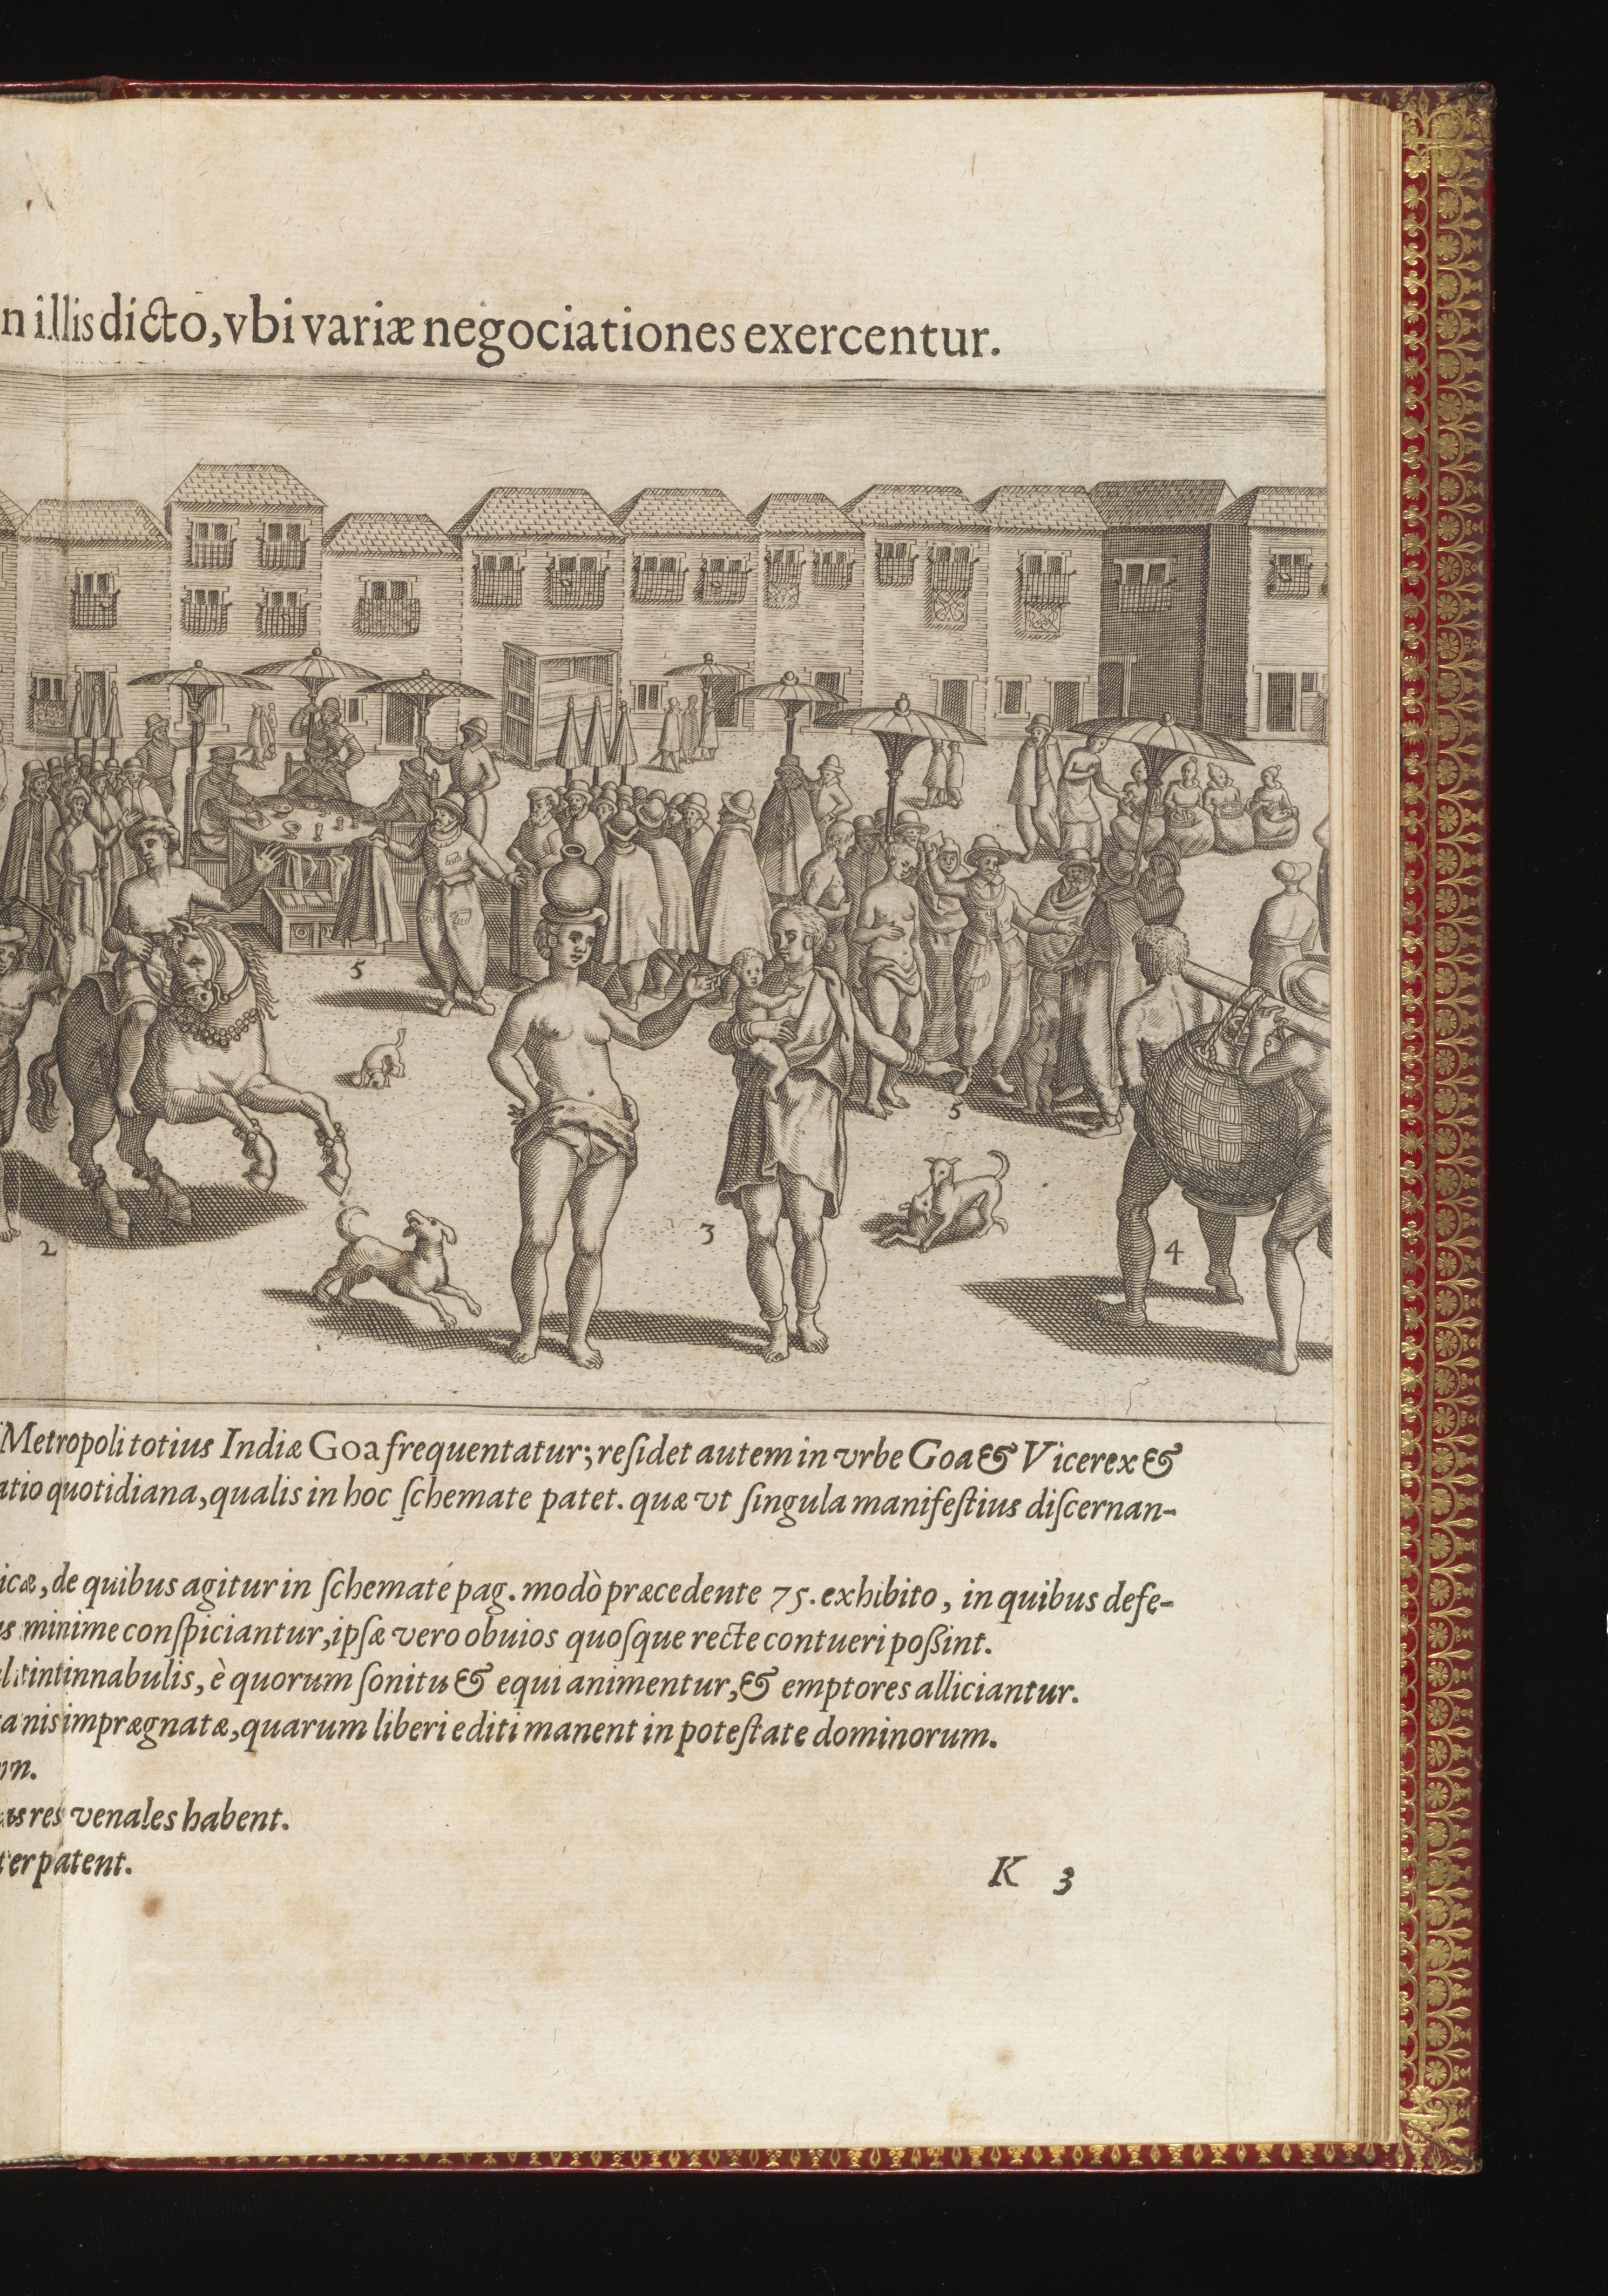 n illis dicto, vbi variæ negociationes exercentur.
5
5
2
3
4
Metropoli totius Indiæ Goa frequentatur; reſidet autem in vrbe Goa & Vicerex &
atio quotidiana, qualis in hoc ſchemate patet. quæ vt ſingula manifeſtius diſcernan-
icæ, de quibus agitur in ſchemate pag. modò præcedente 75. exhibito, in quibus defe-
minime conſpiciantur, ipſæ vero obuios quoſque recte contueri poßint.
tintinnabulis, è quorum ſonitu & equi animentur, & emptores alliciantur.
anis imprægnatæ, quarum liberi editi manent in poteſtate dominorum.
res venales habent.
ter patent.
K 3